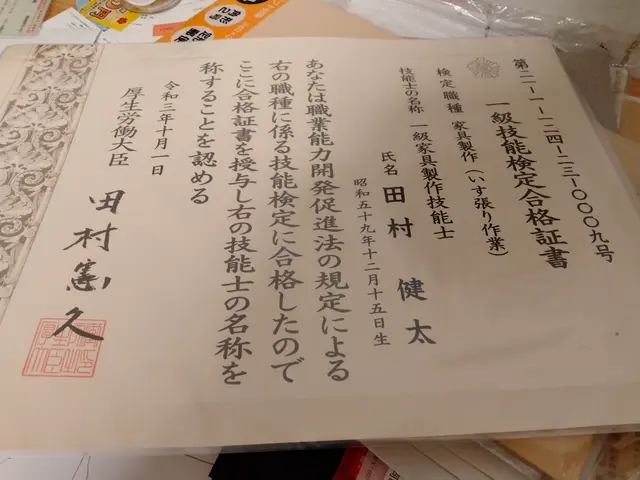 第二一-一-一二四-二三-〇〇〇九号
一級技能検定合格証書
検定職種 家具製作(いす張り作業)
技能士の名称 一級家具製作技能士
氏名 田村 健太
昭和五十九年十二月十五日生
あなたは職業能力開発促進法の規定による
右の職種に係る技能検定に合格したので
ここに合格証書を授与し右の技能士の名称を
称することを認める
令和三年十月一日
厚生労働大臣 田村憲久